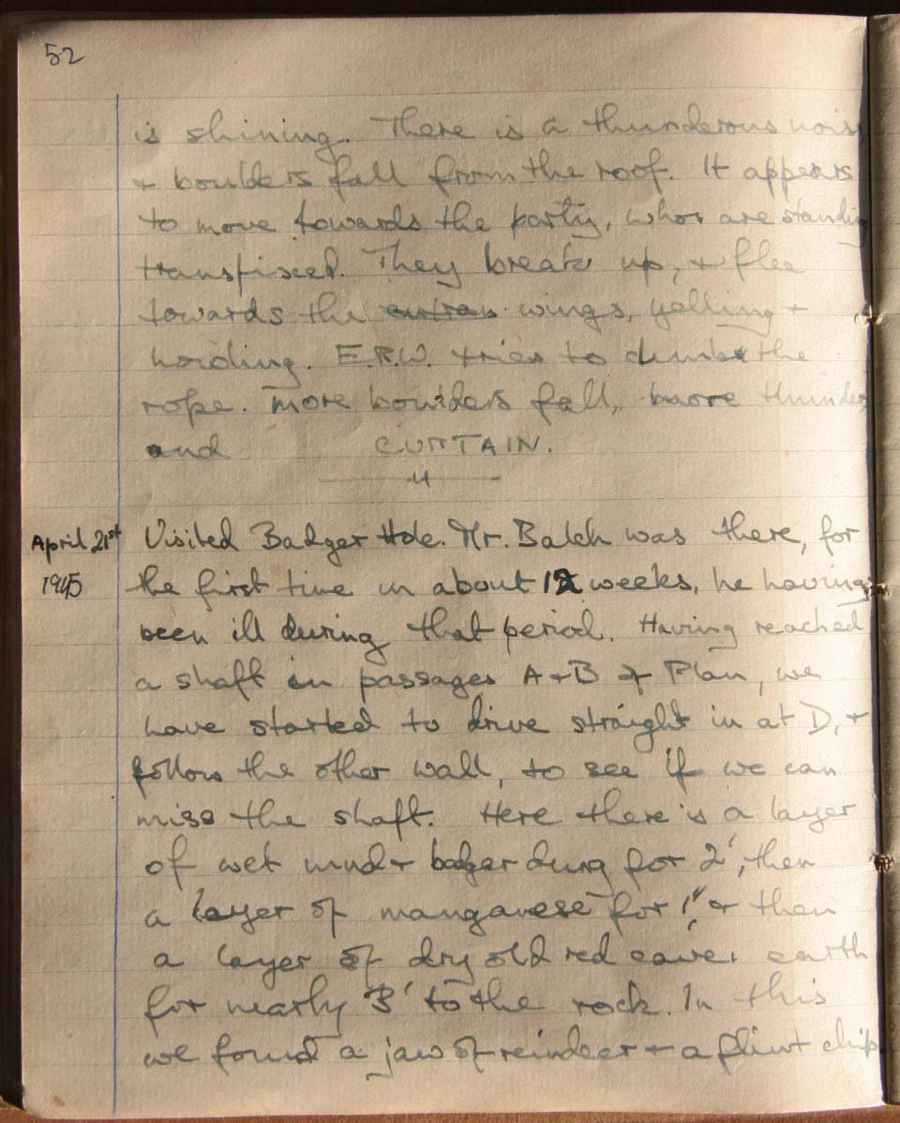 52
is shining. There is a thunderous nois
& boulders fall from the roof. It appears
to move towards the party, who are standing
transfixed. They break up, & flee
towards the entran wings, yelling &
. E.R.W. tries to climb the
rope. More boulders fall, more thunder,
and CURTAIN.
April 21st Visited Badger Hole. Mr. Balch was there, for
1945 the first time in about 12 weeks, he having
been ill during that period. Having reached
a shaft in passages A & B of Plan, we
have started to drive straight in at D, &
follow the other wall, to see if we can
miss the shaft. Here there is a layer
of wet mud & badger dung for 2', then
a layer of manganese for 1" & then
a layer of dry old red cave earth
for nearly 3' to the rock. In this
we found a jaw of reindeer & a flint chip